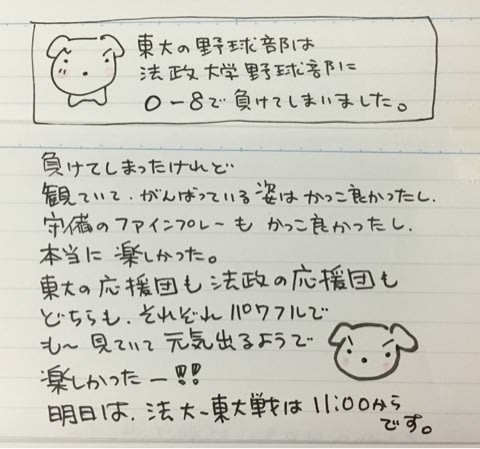 東大の野球部は
法政大学野球部に
0-8で負けてしまいました。
負けてしまったけれど
観ていて、がんばっている姿はかっこ良かったし、
守備のファインプレーもかっこ良かったし、
本当に楽しかった。
東大の応援団も法政の応援団も
どちらも、それぞれパワフルで
も〜見ていて元気出るようで
楽しかったー!!
明日は、法大-東大戦は11:00から
です。